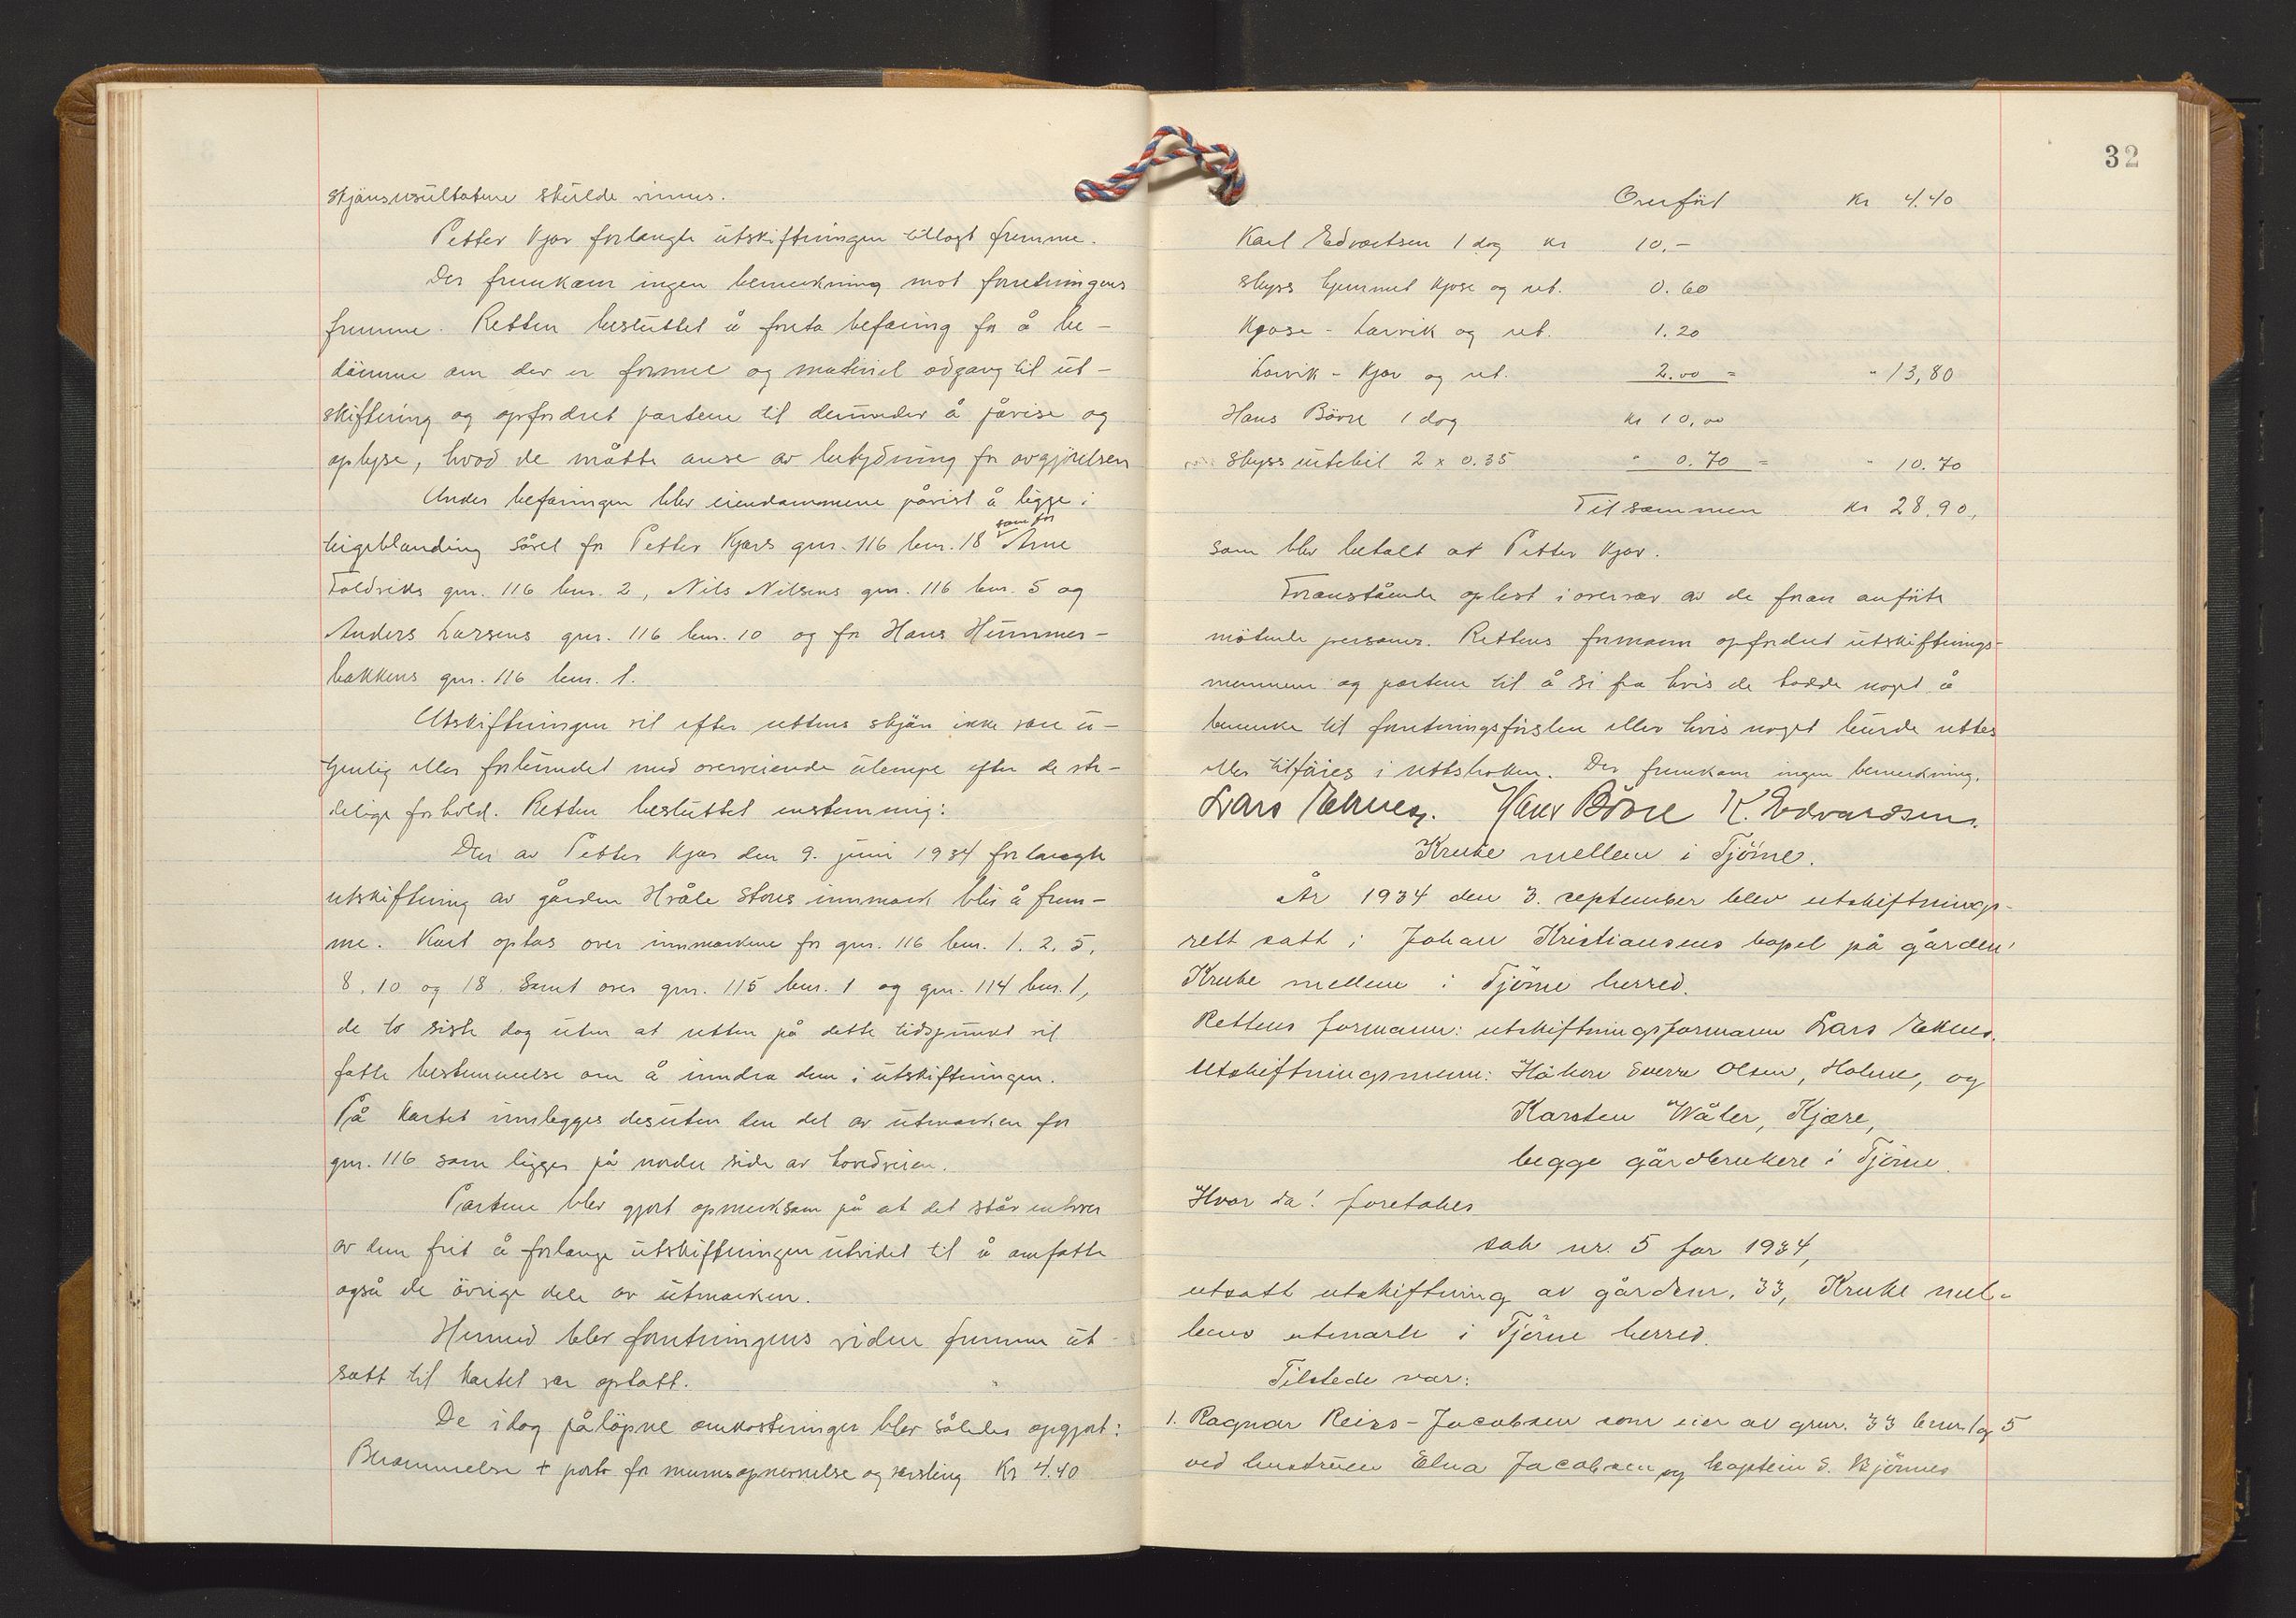 skjønsresultatene skulde vinnes.
Petter Kjær forlangte utskiftningen tillagt fremme.
Der fremkom ingen bemerkning mot forretningens
fremme. Retten besluttet å foreta befaring for å be-
dömme om der er formel og materiel adgang til ut-
skiftning og opfordret partene til derunder å påvise og
oplyse, hvad de måtte anse av betydning for avgjörelsen
Under befaringen blev eiendommene påvist å ligge i
teigeblanding såvel for Petter Kjærs gnr. 116 bnr. 18 som for Arne
Foldviks gnr. 116 bnr. 2, Nils Nilsens gnr. 116 bnr. 5 og
Anders Larsens gnr. 116 bnr. 10 og for Hans Hummer-
bakkens gnr. 116 bnr. 1.
Utskiftningen vil efter rettens skjön ikke være u-
tjenlig eller forbundet med overveiende ulempe efter de ste-
delige forhold. Retten besluttet enstemmig:
Den av Petter Kjær den 9. juni 1934 forlangte
utskiftning av gården Hvåle Stores innmark blir å frem-
me. Kart optas over innmarkene for gnr. 116 bnr. 1. 2. 5,
8. 10 og 18. Samt over gnr. 115 bnr. 1 og gnr. 114 bnr. 1,
de to siste dog uten at retten på dette tidspunkt vil
fatte bestemmelse om å inndra dem i utskiftningen.
På kartet innlegges desuten den del av utmarken for
gnr. 116 som ligger på nordre side av hovedveien.
Partene blev gjort opmerksom på at det står enhver
av dem frit å forlange utskiftningen utvidet til å omfatte
også de övrige dele av utmarken.
Hermed blev forretningens videre fremme ut-
satt til kartet var optatt.
De idag pålöpne omkostninger blev således opgjort:
Berammelse + porto for mennsopnevnelse og varsling Kr 4.40
32
Overfört kr 4.40
Karl Edvartsen 1 dag kr 10.-
Skyss hjemmet Kjose og ret. 0.60
Kjose - Larvik og ret. 1.20
Larvik - Kjær og ret. 2.00 = " 13,80
Hans Bövre 1 dag kr 10,00
Skyss rutebil 2 x 0.35 " 0.70 = " 10.70
Tilsammen kr 28.90,
som blev betalt av Petter Kjær.
Foranstående oplest i overvær av de foran anförte
mötende personer. Rettens formann opfordret utskiftnings-
mennene og partene til å si fra hvis de hadde noget å
bemerke til forretningsförslen eller hvis noget burde rettes
eller tilföies i rettsboken. Der fremkom ingen bemerkning.
Lars Eknes. Hans Bövre K. Edvardsen.
Kruke mellem i Tjöme.
År 1934 den 3. september blev utskiftnings-
rett satt i Johan Kristiansens bopel på gården
Kruke mellem i Tjöme herred.
Rettens formann: utskiftningsformann Lars Eknes.
Utskiftningsmenn: Håkon Sverre Olsen, Holme, og
Karsten Wåler, Kjære,
begge gårdbrukere i Tjöme.
Hvor da! foretokes
sak nr. 5 for 1934,
utsatt utskiftning av gårdsnr. 33, Kruke mel-
lems utmark i Tjöme herred.
Tilstede var:
1. Ragnar Reiss-Jacobsen som eier av gnr. 33 bnr. 1 og 5
ved hustruen Elna Jacobsen og kaptein S. Bjönnes